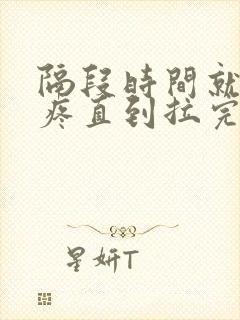 隔段時間就
疼直到拉完
星妍T